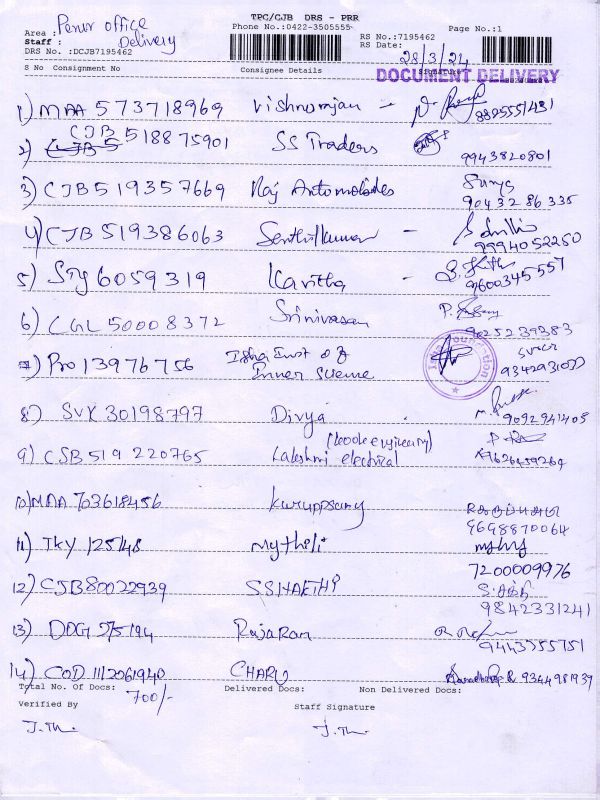 TPC/CJB DRS - PRR
Area : Perur office
Phone No.:0422-3505555
Page No.:1
Staff : Delivery
RS No.:7195462
DRS No. :DCJB7195462
RS Date: 28/3/24
S No Consignment No Consignee Details Signature
DOCUMENT DELIVERY
1) MAA 573718969 Vishnuranjan - 8895551431
2) CJB 518875901 SS Traders 9943820801
3) CJB 519357669 Raj Automobiles Surya
9043286335
4) CJB 519386063 Senthilkumar - 9994052250
5) STJ 6059319 Kavitha - 9600345557
6) CGL 50008372 Srinivasan 9025239383
7) PRO 13976756 Isha Inst of
Inner Science
8) SVK 30198797 Divya 9092941405
9) CJB 519 220765 Lakshmi electrical
10) MAA 703618456 Karuppsamy கருப்பசாமி
9698870064
11) TKY 125148 Mytheli
7200009976
12) CJB80022939 S SHAKTHI S. சக்தி
9842331241
13) DDG 575194 RajaRam 9443555751
14) COD 1112061940 CHARU 9344981939
Total No. Of Docs: Delivered Docs: Non Delivered Docs:
700/-
Verified By Staff Signature
J.Th. J.Th.